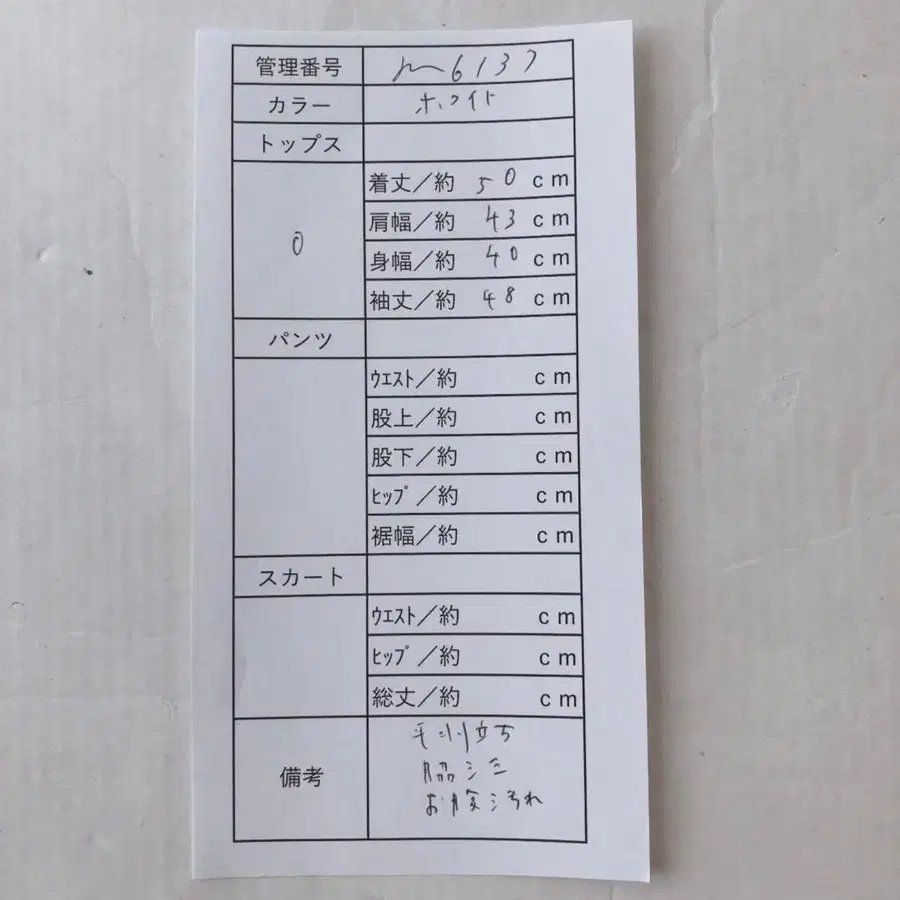 管理番号 m6137
カラー ホワイト
トップス
0
着丈／約 50 cm
肩幅／約 43 cm
身幅／約 40 cm
袖丈／約 48 cm
パンツ
ｳｴｽﾄ／約 cm
股上／約 cm
股下／約 cm
ﾋｯﾌﾟ／約 cm
裾幅／約 cm
スカート
ｳｴｽﾄ／約 cm
ﾋｯﾌﾟ／約 cm
総丈／約 cm
備考
毛羽立ち
脇シミ
お腹汚れ